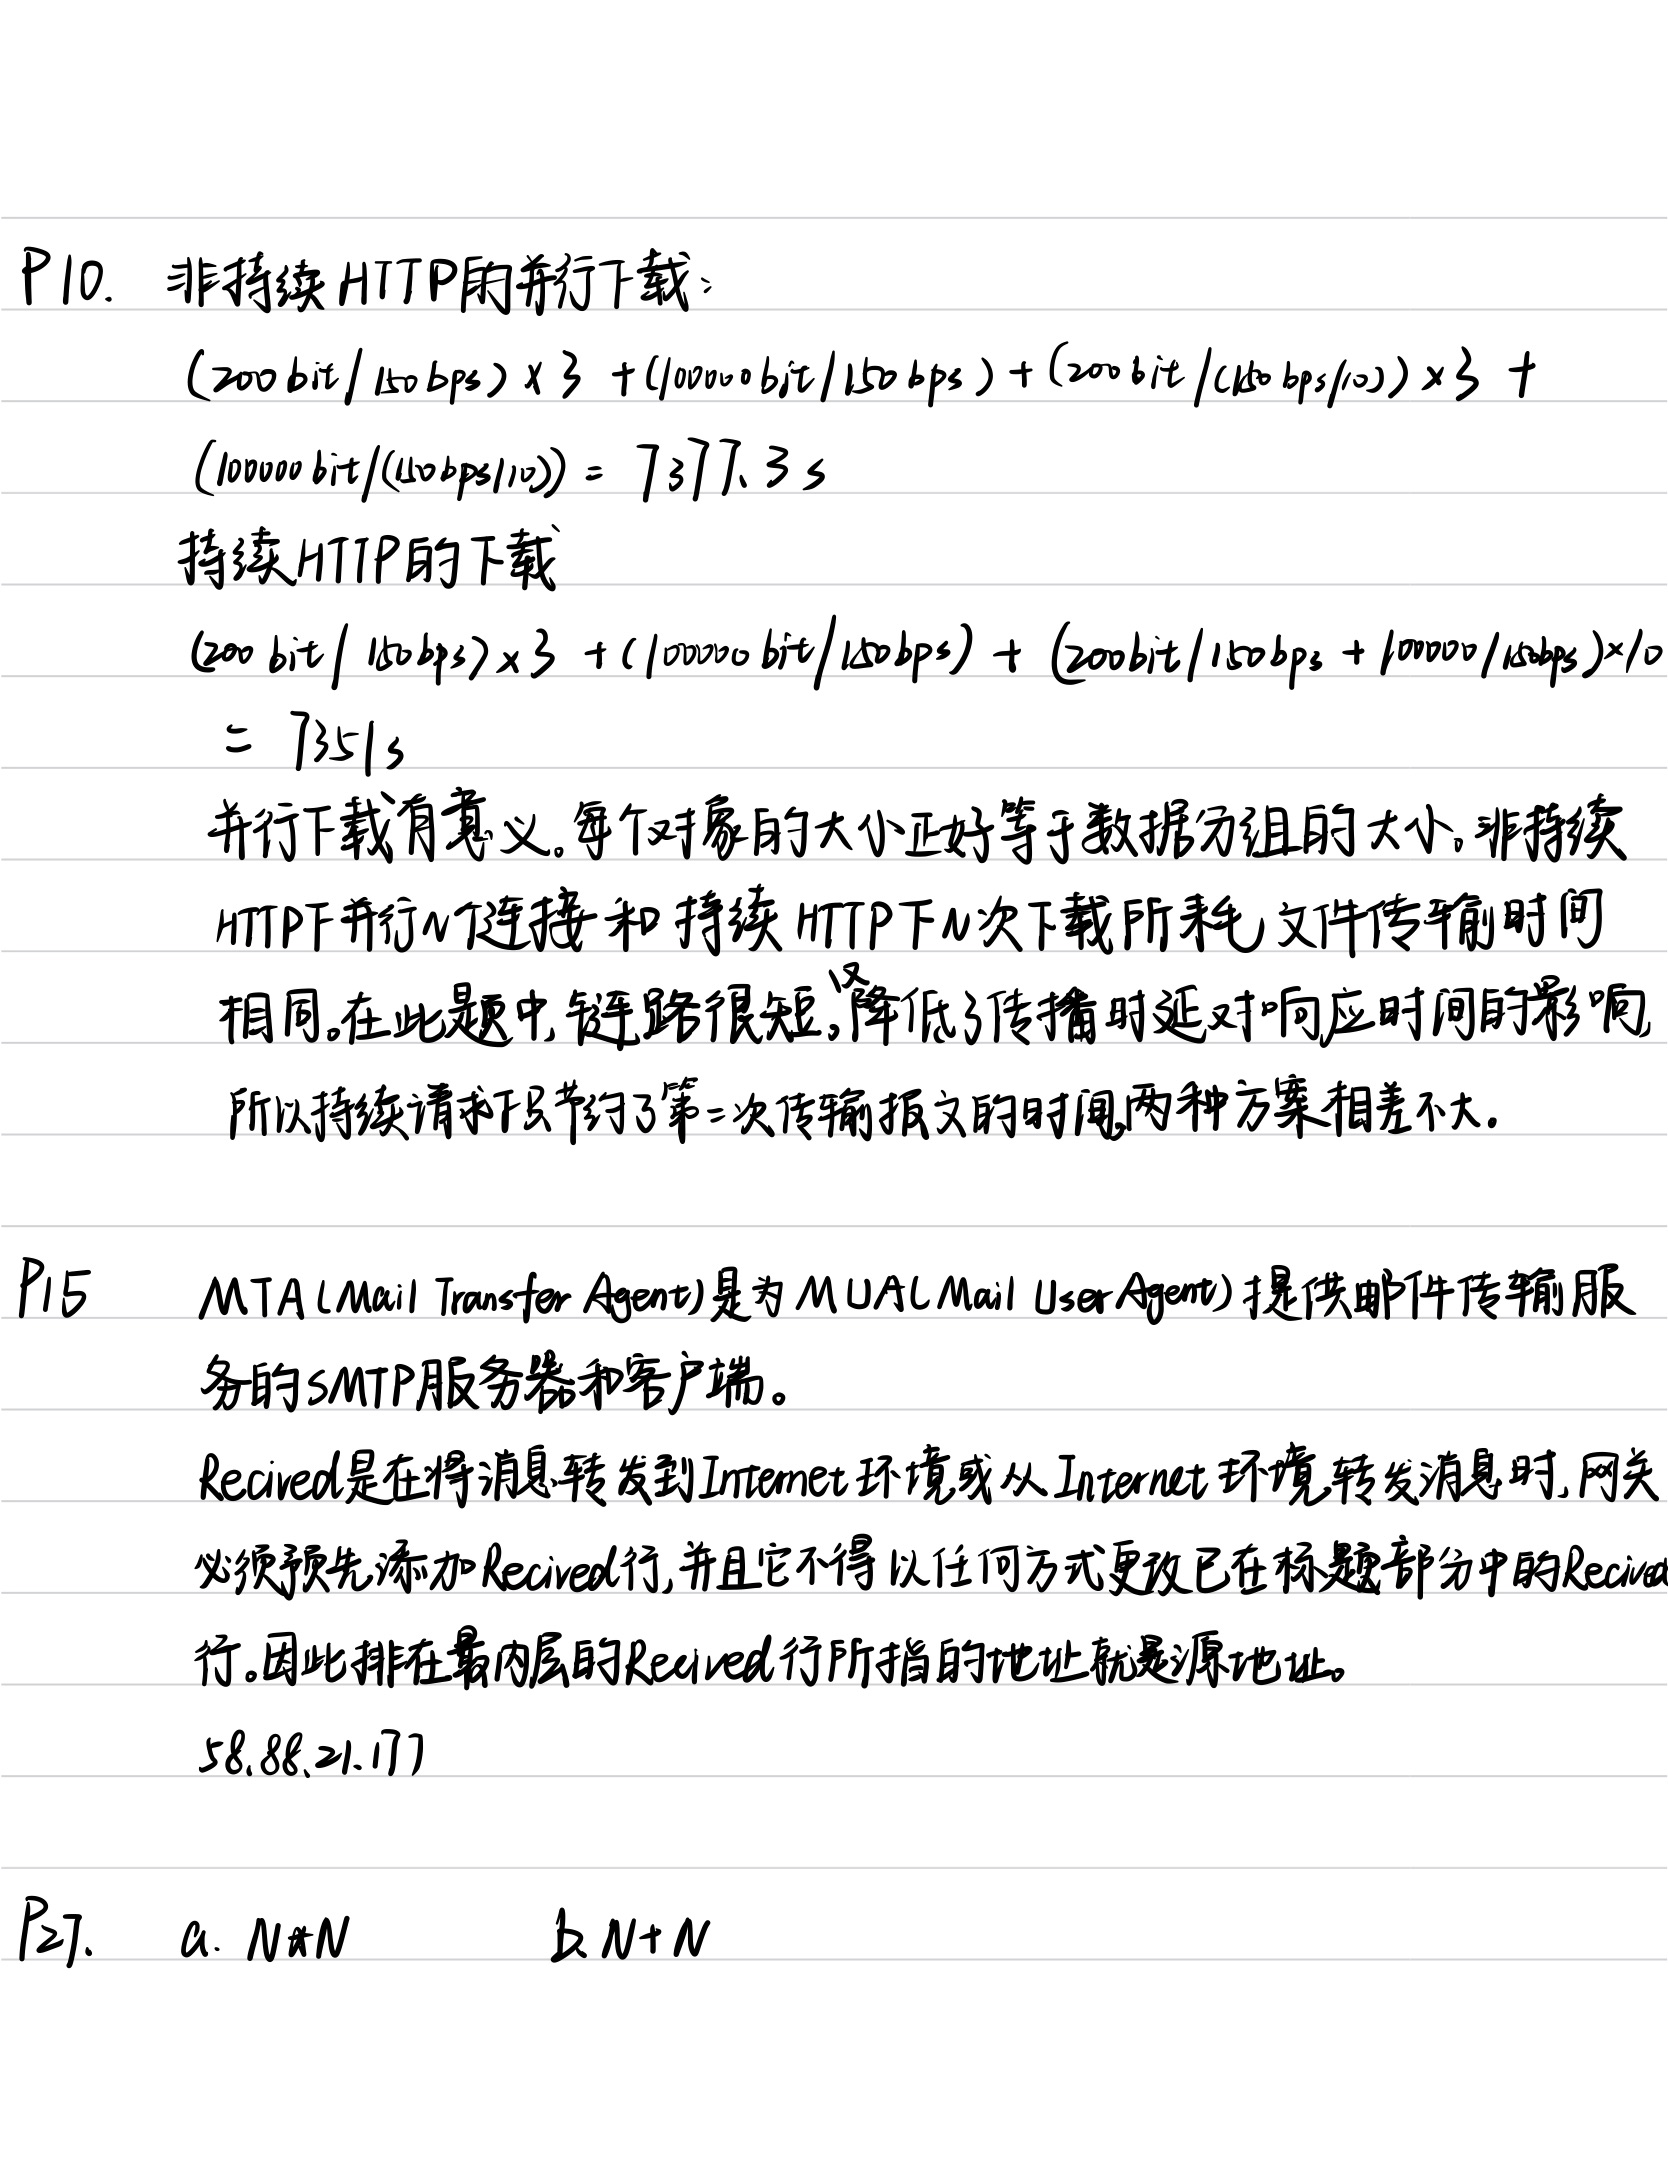 P10. 非持续HTTP的并行下载:
(200bit/150bps)×3 +(100000bit/150bps)+(200bit/(150bps/10))×3 +
(100000bit/(150bps/10)) = 7377.3s
持续HTTP的下载
(200bit/150bps)×3 +(100000bit/150bps) + (200bit/150bps + 100000/150bps)×10
= 7351s
并行下载有意义。每个对象的大小正好等于数据分组的大小。非持续
HTTP下并行N个连接和持续HTTP下N次下载所耗文件传输时间
相同。在此题中,链路很短,又降低了传播时延对响应时间的影响,
所以持续请求下只节约了第二次传输报文的时间,两种方案相差不大.
P15 MTA(Mail Transfer Agent)是为MUA(Mail User Agent)提供邮件传输服
务的SMTP服务器和客户端。
Recived是在将消息转发到Internet环境或从Internet环境转发消息时,网关
必须预先添加Recived行,并且它不得以任何方式更改已在标题部分中的Recived
行。因此排在最内层的Recived行所指的地址就是源地址。
58.88.21.177
P27. a. N*N b. N+N